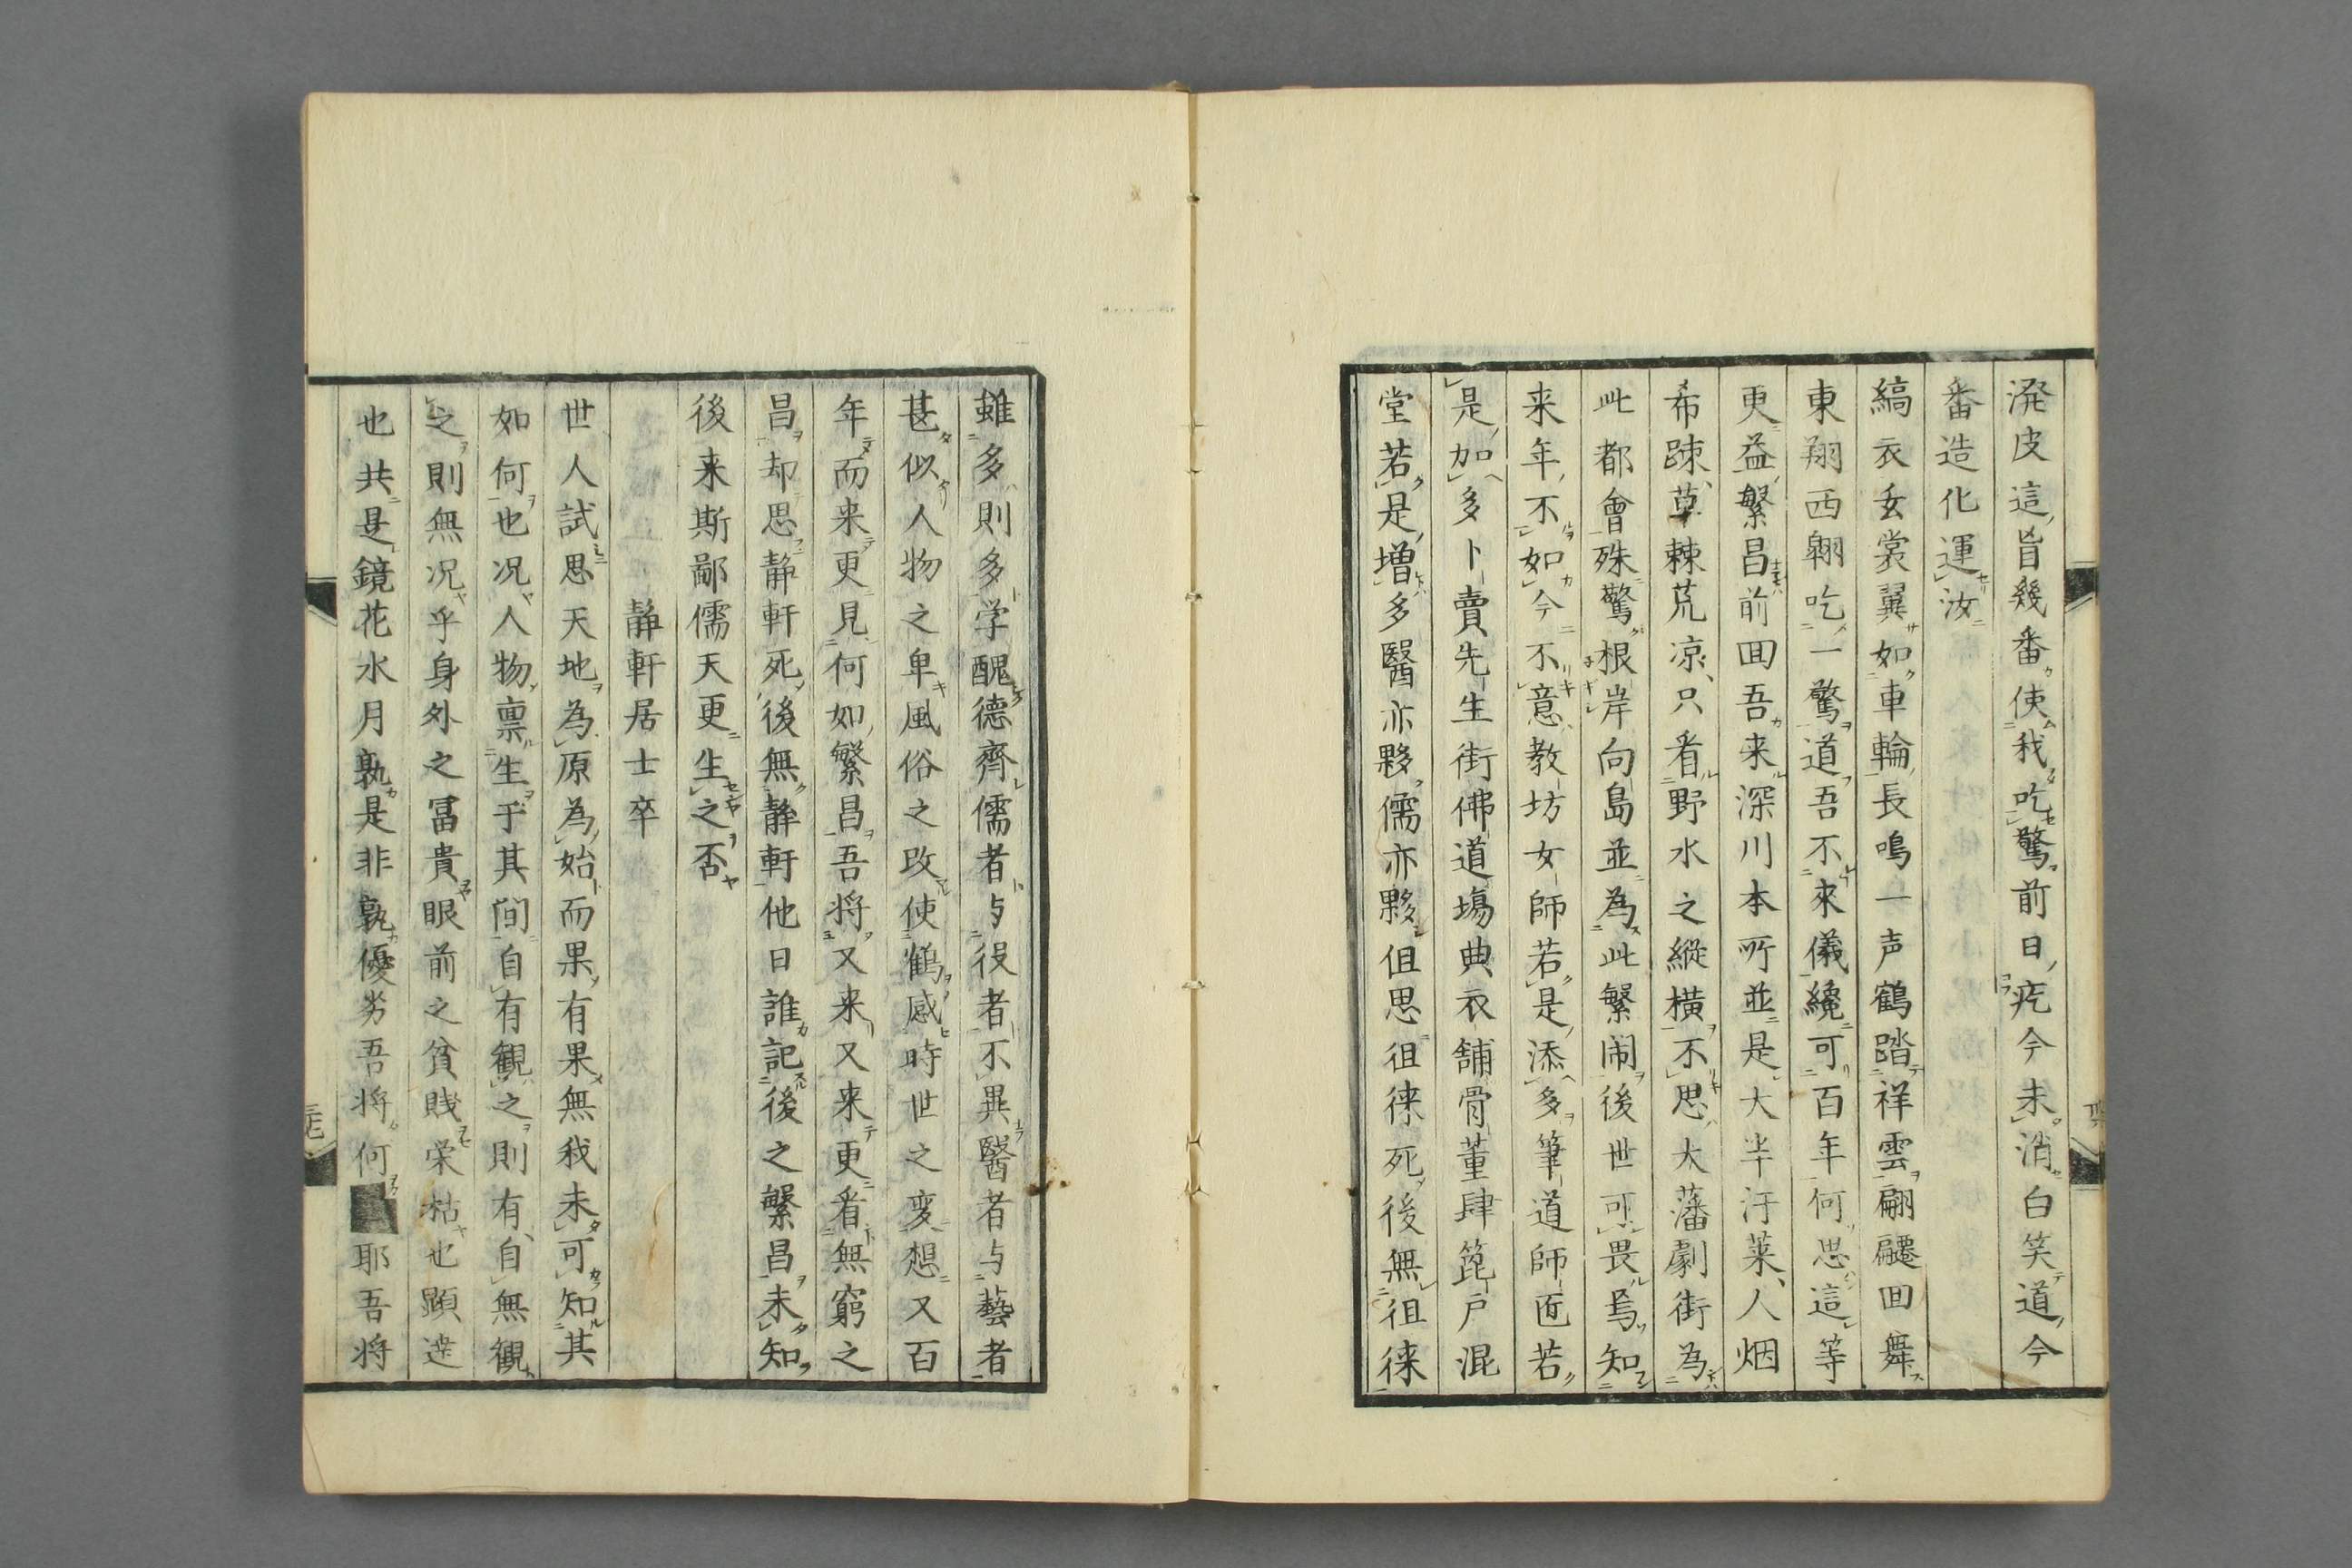 溌皮這旨幾番使我吃驚前日疙今未消白笑道今
番造化運汝
縞衣玄裳翼如車輪長鳴一声鶴踏祥雲翩躚回舞
東翔西翺吃一驚道吾不來儀纔可百年何思這等
更益繁昌前回吾来深川本所並是大半汙莱人烟
希踈草棘荒凉只看野水之縦横不思大藩劇街為
此都會殊驚根岸向島並為此繁閙後世可畏焉知
来年不如今不意教坊女師若是添多筆道師匠若
是加多卜賣先生街佛道塲典衣舗骨董肆箆戸混
堂若是増多醫亦夥儒亦夥但思徂徠死後無徂徠
雖多則多学醜德齊儒者与役者不異醫者与藝者
甚似人物之卑風俗之改使鶴感時世之変想又百
年而来更見何如繁昌吾将又来又来更看無窮之
昌却思静軒死後無静軒他日誰記後之繁昌未知
後来斯鄙儒天更生之否
静軒居士卒
世人試思天地為原為始而果有果無我未可知其
如何也况人物禀生乎其間自有観之則有自無観
之則無况乎身外之冨貴眼前之貧賎栄枯也顕達
也共是鏡花水月孰是非孰優劣吾将何耶吾将